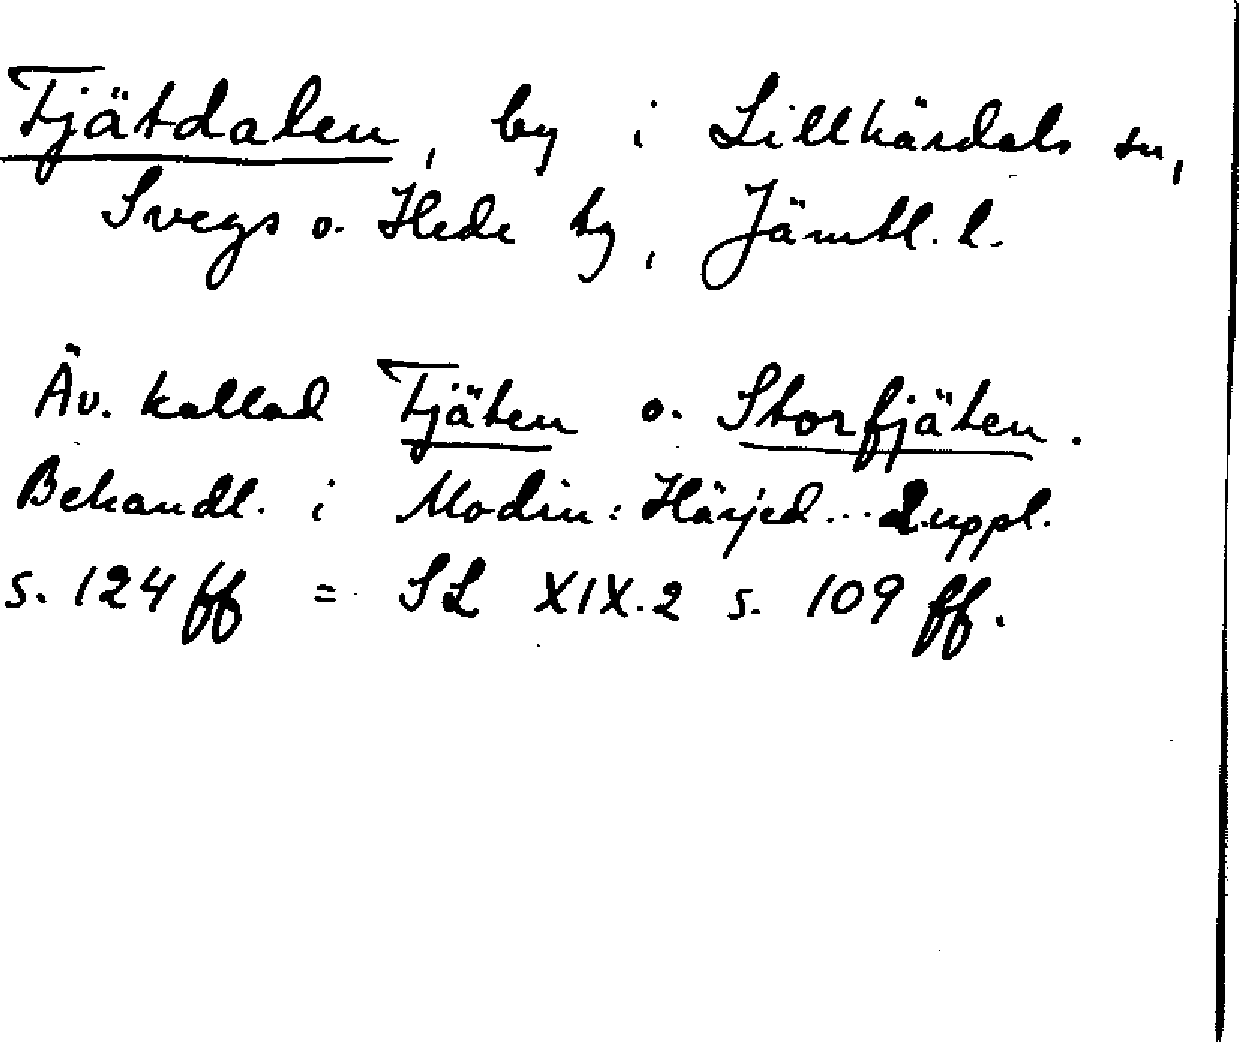 Fjätdalen, by i Lillhärdals sn,
Svegs o. Hede tg, Jämtl. l.
Äv. kallad Fjäten o. Storfjäten.
Behandl. i Modin: Härjed... 2.uppl.
s. 124 ff = SL XIX.2 s. 109 ff.